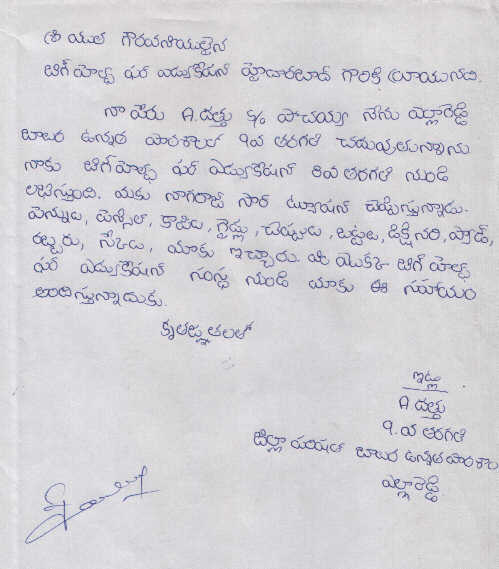 శ్రీ యుత గౌరవనీయులైన
బిగ్ హెల్ప్ ఫర్ ఎడ్యుకేషన్ హైదారబాద్ గారికి వ్రాయునది.
నా పేరు A. దత్తు S/o పోచయ్య నేను ఎల్లారెడ్డి
బాలుర ఉన్నత పాఠశాలలో 9వ తరగతి చదువుతున్నాను
నాకు బిగ్ హెల్ప్ ఫర్ ఎడ్యుకేషన్ 8వ తరగతి నుండి
లభిస్తుంది. మాకు నాగరాజ్ సార్ ట్యూషన్ చెప్పిస్తున్నాడు.
పెన్నులు, పెన్సిల్, కాపీలు, గైడ్లు, చెప్పులు, బట్టలు, డిక్షినరి, ప్యాడ్,
రబ్బరు, స్కేలు, మాకు ఇచ్చారు. ఈ యొక్క బిగ్ హెల్ప్
ఫర్ ఎడ్యుకేషన్ సంస్థ నుండి మాకు ఈ సహాయం
అందిస్తున్నాదుకు.
కృతజ్ఞతలతో
ఇట్లు
A దత్తు
9. వ తరగతి
జిల్లా పరిషత్ బాలుర ఉన్నత పాఠశాల
ఎల్లారెడ్డి